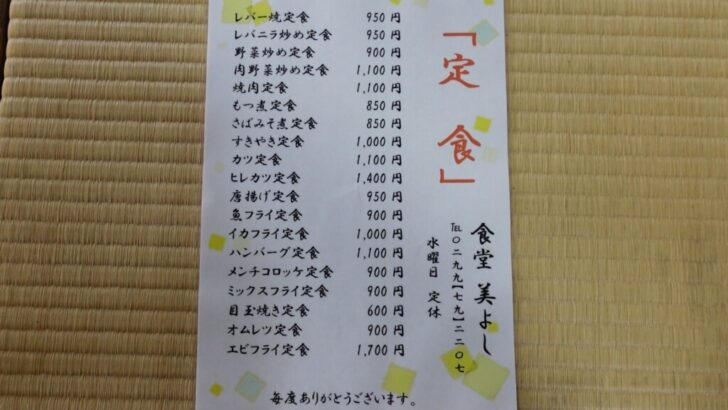 「定 食」
レバー焼定食 950 円
レバニラ炒め定食 950 円
野菜炒め定食 900 円
肉野菜炒め定食 1,100 円
焼肉定食 1,100 円
もつ煮定食 850 円
さばみそ煮定食 850 円
すきやき定食 1,000 円
カツ定食 1,100 円
ヒレカツ定食 1,400 円
唐揚げ定食 950 円
魚フライ定食 900 円
イカフライ定食 1,000 円
ハンバーグ定食 1,100 円
メンチコロッケ定食 900 円
ミックスフライ定食 900 円
目玉焼き定食 600 円
オムレツ定食 900 円
エビフライ定食 1,700 円
食堂 美よし
℡〇二九九【七九】二二〇七
水曜日 定休
毎度ありがとうございます。